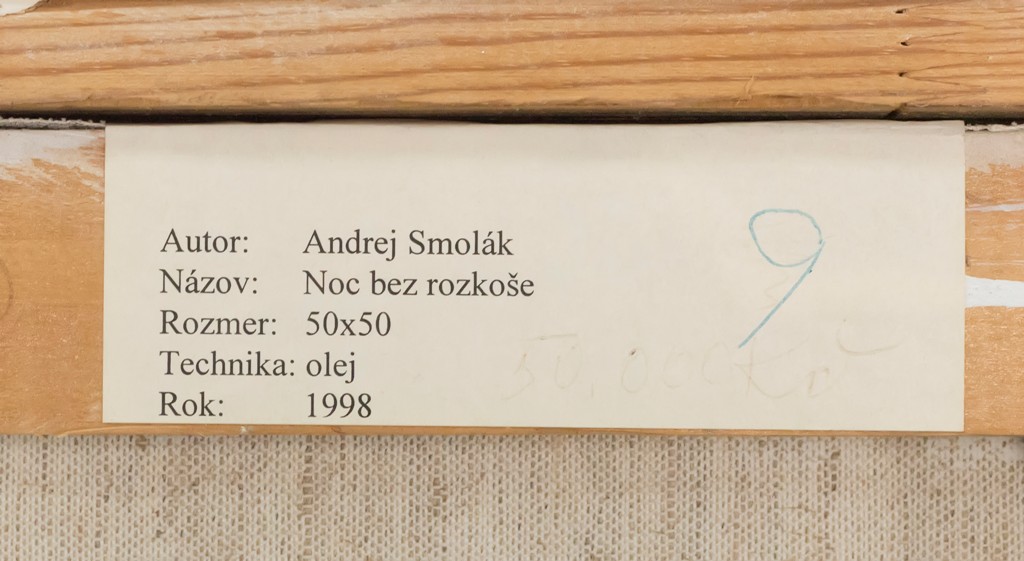 Autor: Andrej Smolák
Názov: Noc bez rozkoše
Rozmer: 50x50
Technika: olej
Rok: 1998
9